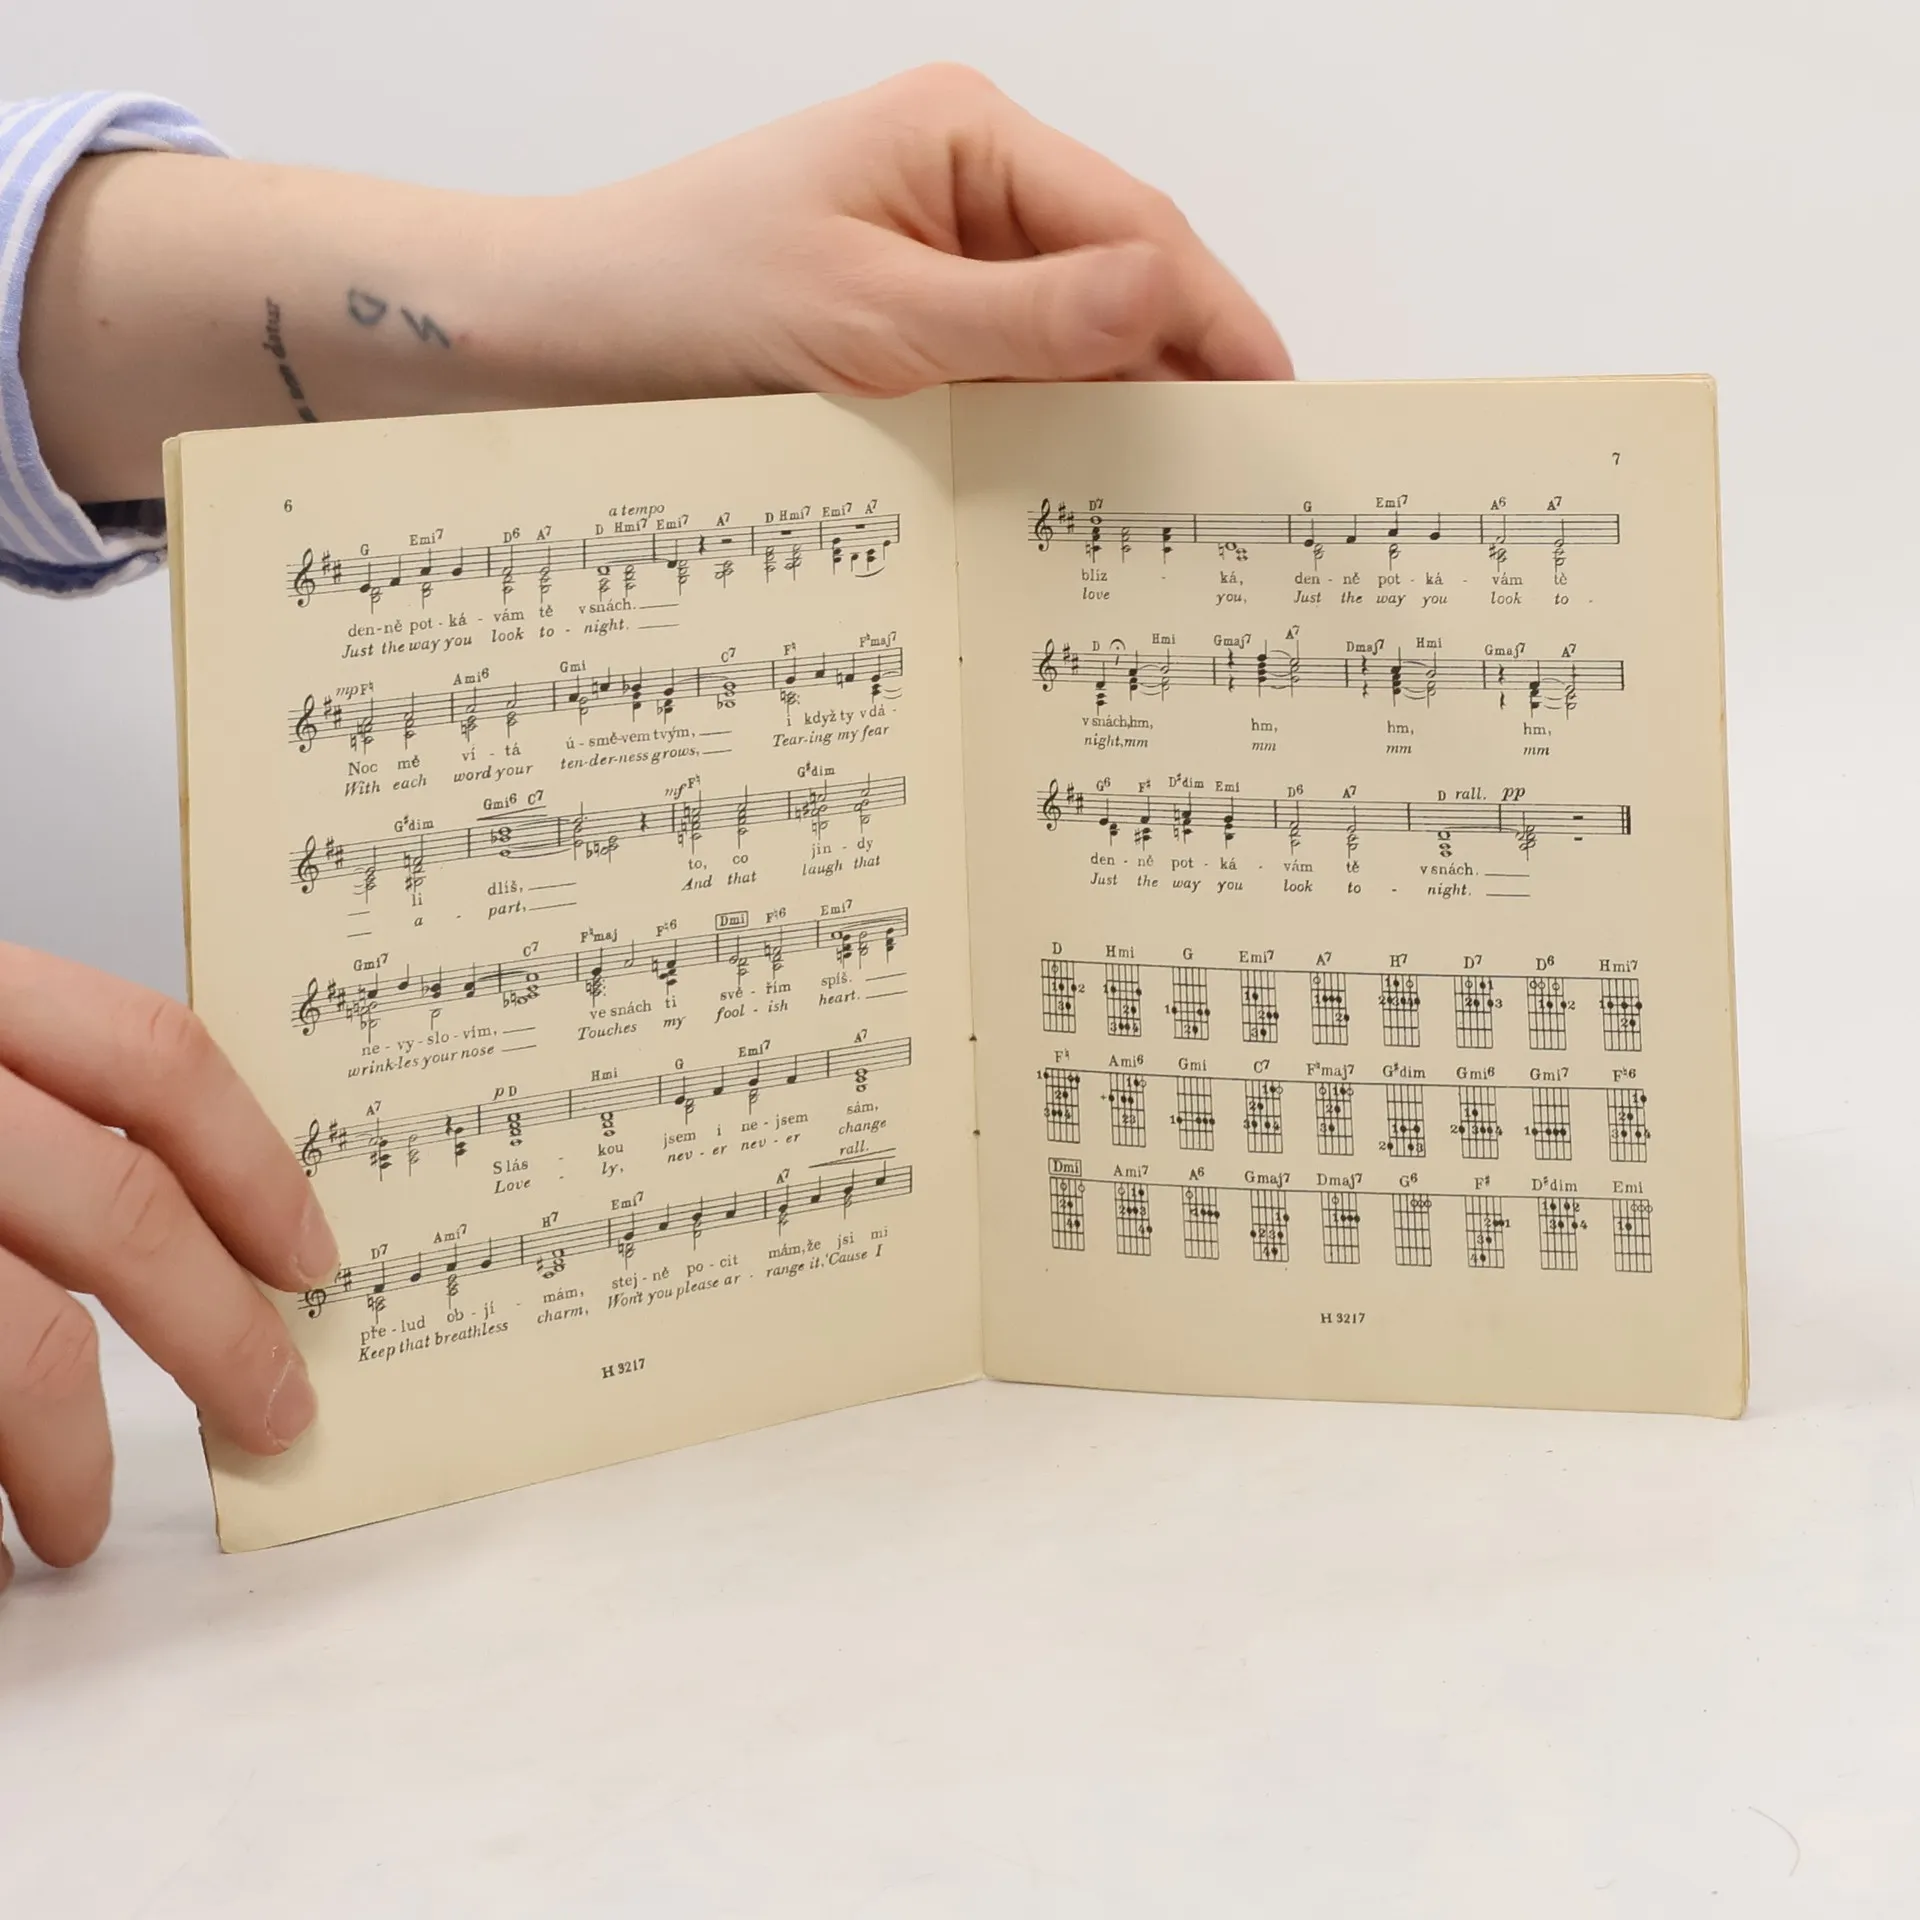 non detur
6
a tempo
G Emi7 D6 A7 D Hmi7 Emi7 A7 D Hmi7 Emi7 A7
den-ně pot-ká-vám tě v snách.
Just the way you look to-night.
mp F♮ Ami6 Gmi C7 F♮ F♮maj7
Noc mě ví-tá ú-smě-vem tvým, i když ty v dá-
With each word your ten-der-ness grows, Tear-ing my fear
G♯dim Gmi6 C7 mf F♮ G♯dim
li dlíš, to, co jin-dy
a-part, And that laugh that
Gmi7 C7 F♮maj F♮6 Dmi F♮6 Emi7
ne-vy-slo-vím, ve snách ti svě-řím spíš.
wrink-les your nose Touches my fool-ish heart.
A7 p D Hmi G Emi7 A7
Slás-kou jsem i ne-jsem sám,
Love-ly, nev-er nev-er change
rall.
D7 Ami7 H7 Emi7 A7
pře-lud ob-jí-mám, stej-ně po-cit mám, že jsi mi
Keep that breathless charm, Won't you please ar-range it, 'Cause I
H 3217
7
D7 G Emi7 A6 A7
blíz-ká, den-ně pot-ká-vám tě
love you, Just the way you look to-
D Hmi Gmaj7 A7 Dmaj7 Hmi Gmaj7 A7
v snách, hm, hm, hm, hm,
night, mm mm mm mm
G6 F♯ D♯dim Emi D6 A7 D rall. pp
den-ně pot-ká-vám tě v snách.
Just the way you look to-night.
D Hmi G Emi7 A7 H7 D7 D6 Hmi7
F♮ Ami6 Gmi C7 F♮maj7 G♯dim Gmi6 Gmi7 F♮6
Dmi Ami7 A6 Gmaj7 Dmaj7 G6 F♯ D♯dim Emi
H 3217